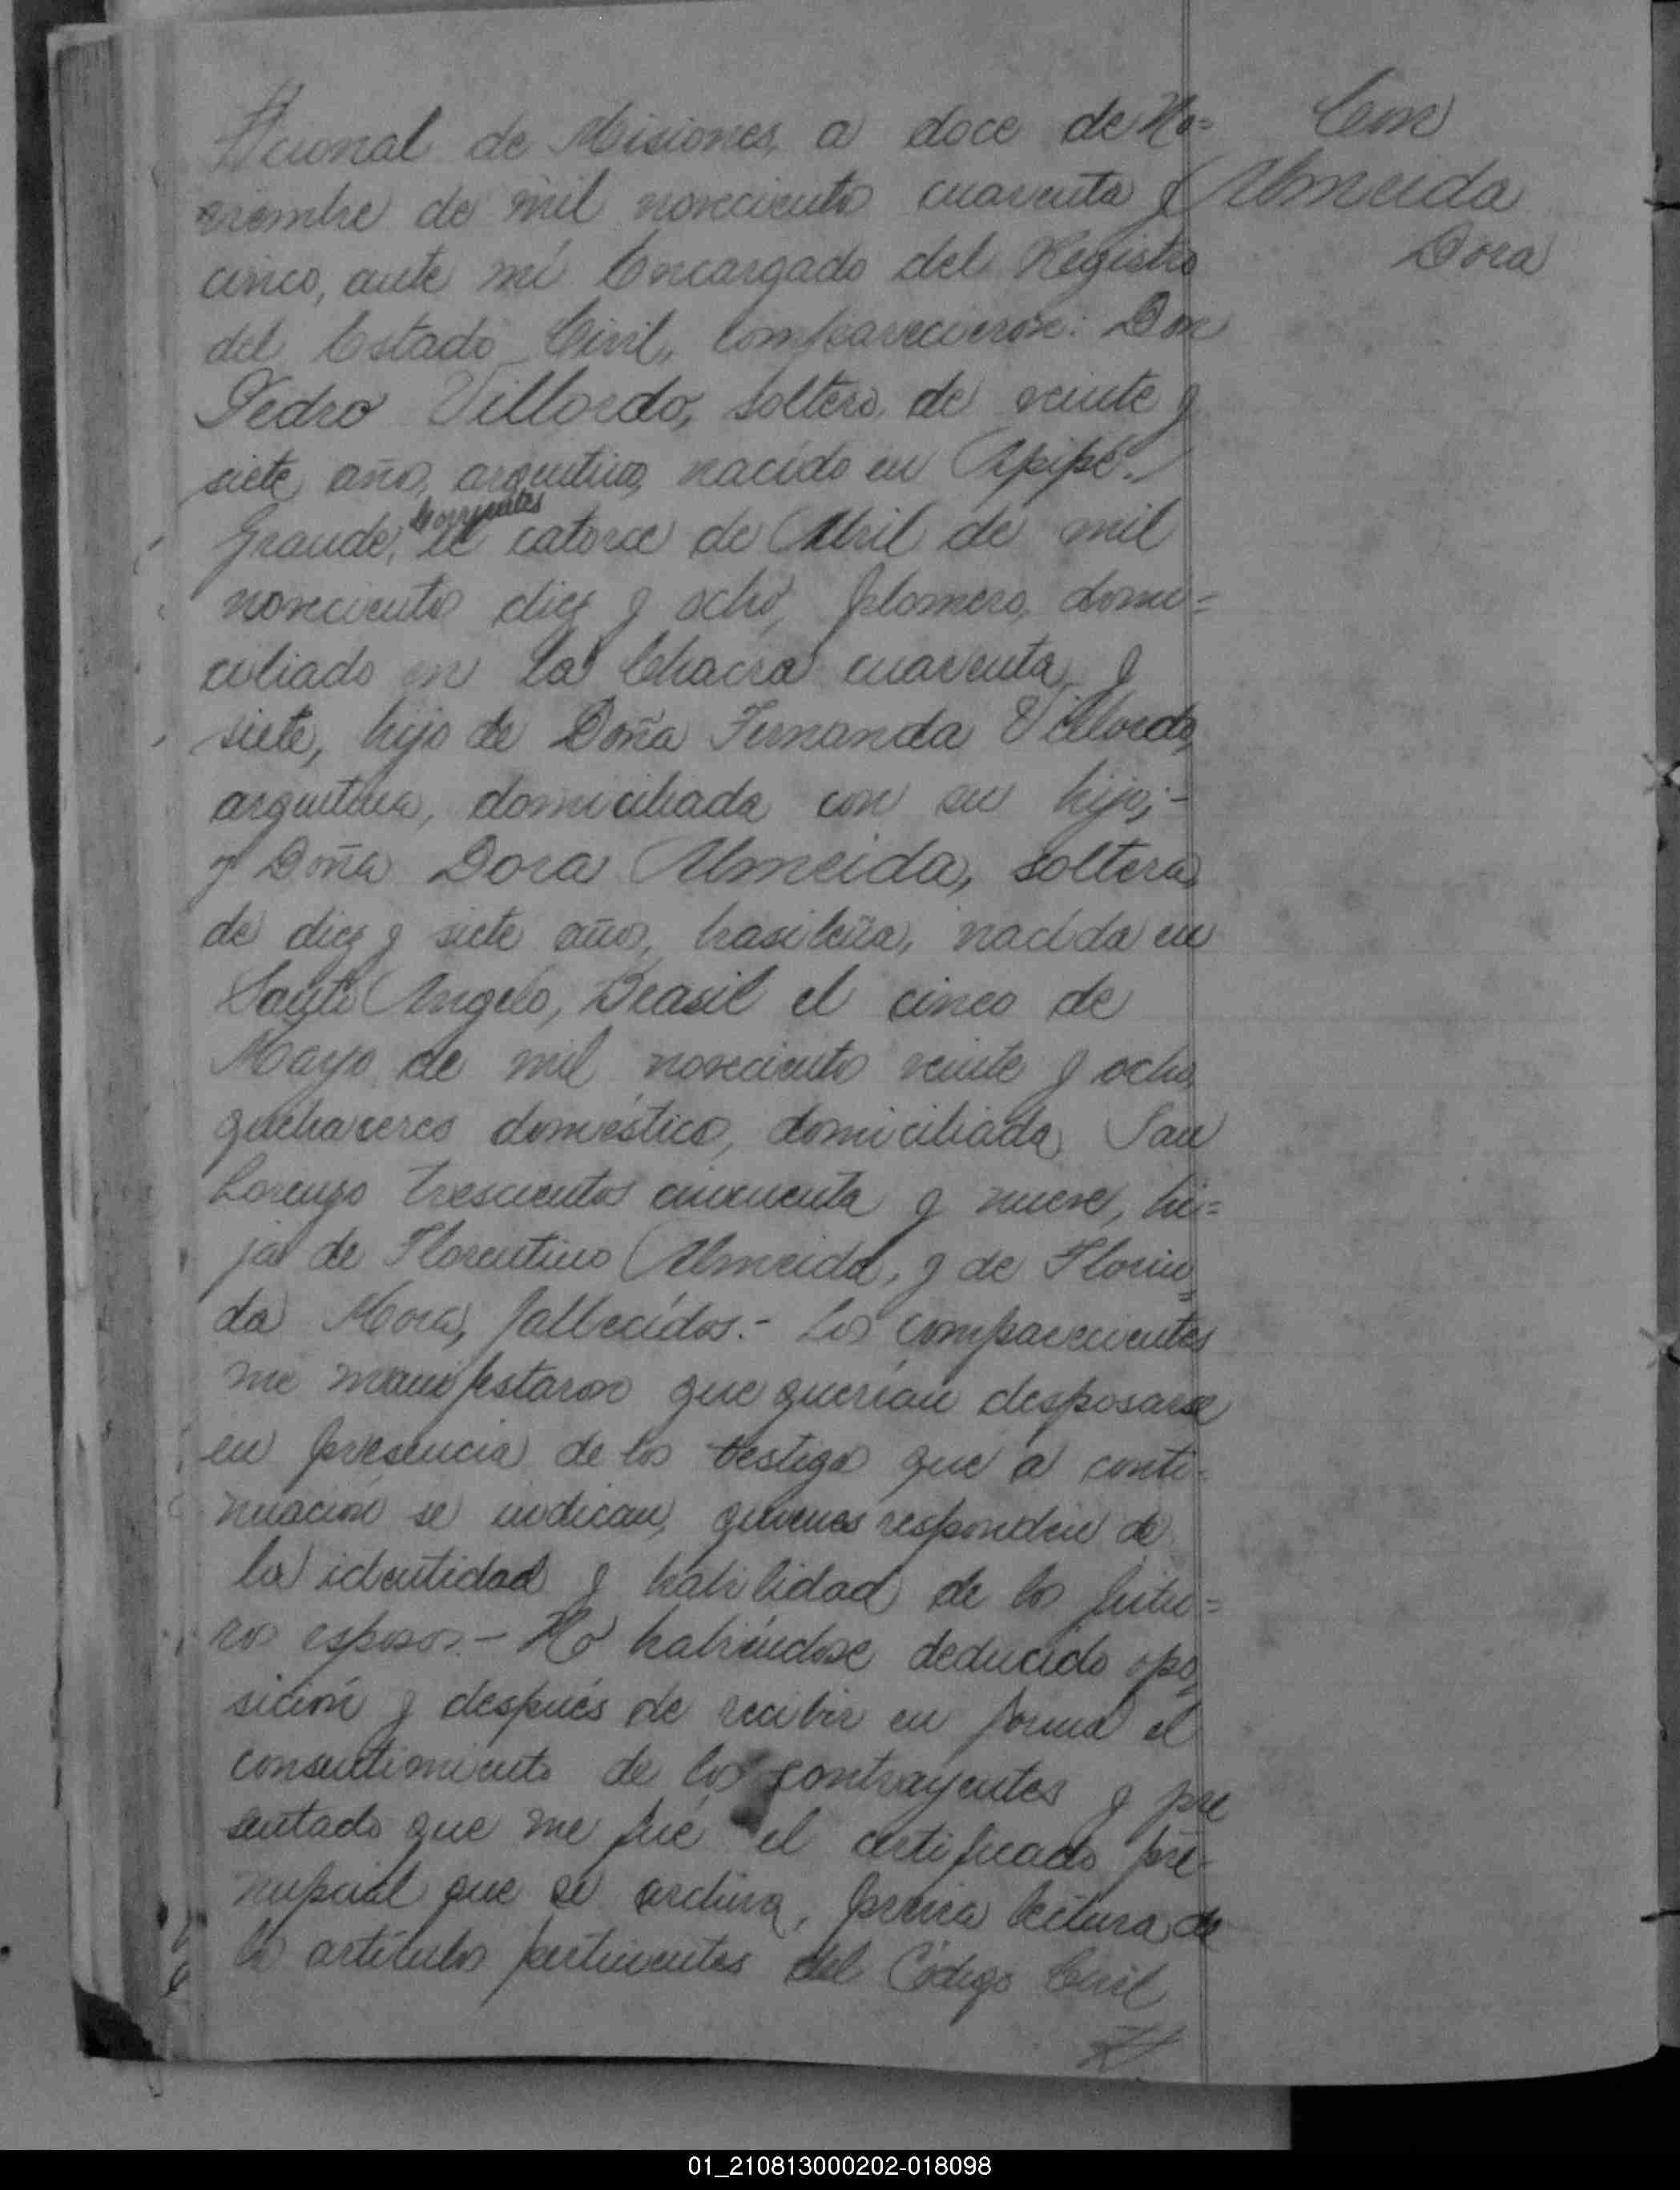 Nacional de Misiones, a doce de No=
viembre de mil novecientos cuarenta y
cinco, ante mi Encargado del Registro
del Estado Civil, Comparecieron: Don
Pedro Villordo, soltero, de veinte y
siete años, argentino, nacido en Apipé
Grande, Corrientes el catorce de Abril de mil
novecientos diez y ocho, plomero, domi=
ciliado en la Chacra cuarenta y
siete, hijo de Doña Fernanda Villordo,
argentina, domiciliada con su hijo;-
y Doña Dora Almeida, soltera,
de diez y siete años, brasileña, nacida en
Santo Angelo, Brasil el cinco de
Mayo de mil novecientos veinte y ocho,
quehaceres domésticos, domiciliada San
Lorenzo trescientos cincuenta y nueve, hi=
ja de Florentino Almeida, y de Florin=
da Mora, fallecidos.- Los comparecientes
me manifestaron que querian desposarse
en presencia de los testigos que a conti-
nuación se indican, quienes responden de
la identidad y habilidad de los futu=
ros esposos.- No habiéndose deducido opo=
sición y después de recibir en forma el
consentimiento de los contrayentes y pre
sentado que me fué el certificado pre-
nupcial que se archiva, previa lectura de
los artículos pertinentes del Código Civil
Con
Almeida
Dora
01_210813000202-018098